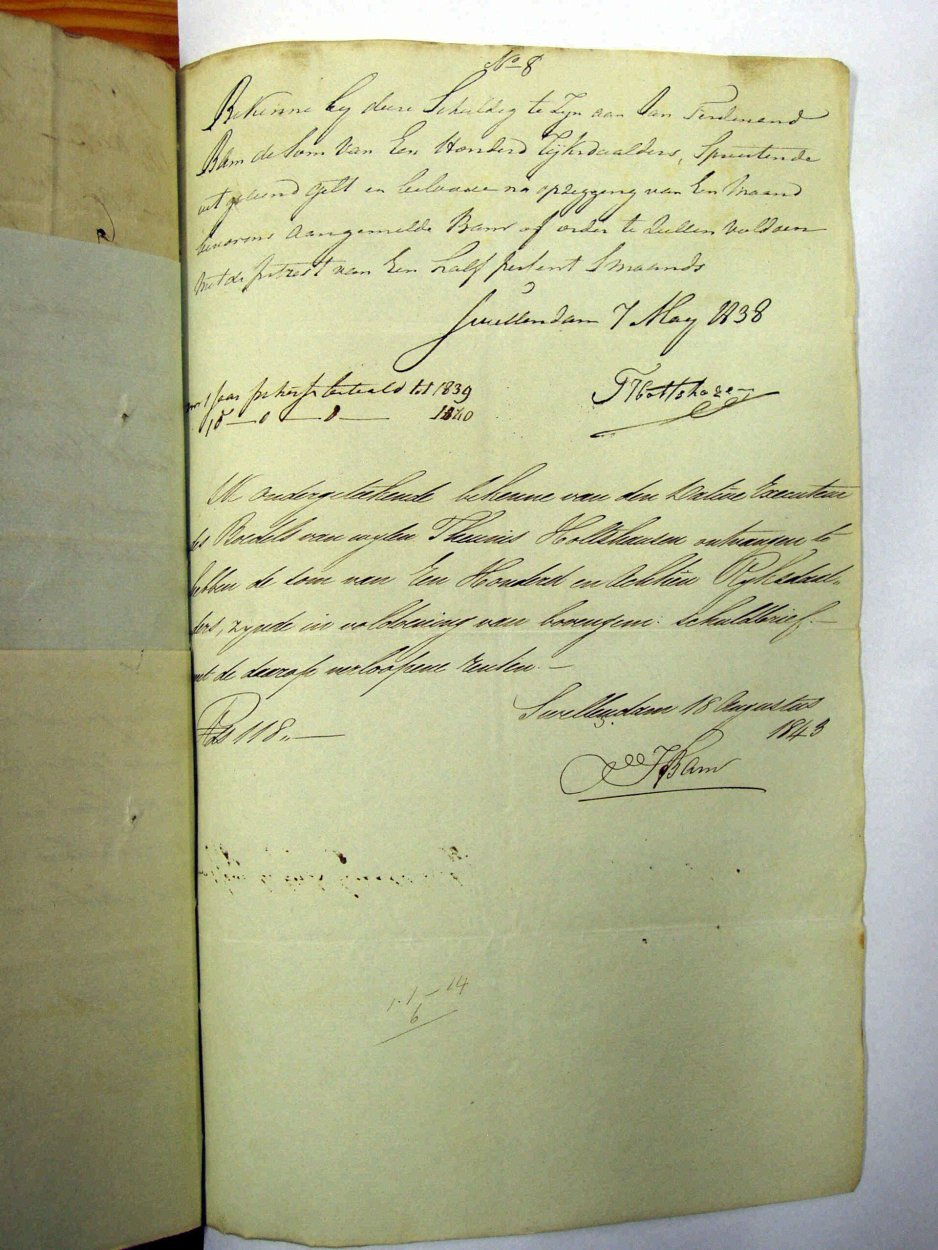 No 8
Bekenne by dese Schuldig te Zyn aan Jan Ferdinand
Bam de Som van Een Honderd Rijksdaalders, Spruitende
uit geleend Gelt en beloove na opzegging van Een Maand
bevorens Aangemelde Bam of order te Zullen Voldoen
met de Intrest van Een half persent Smaands
Swellendam 7 May 1838
1 Jaar Intrest betaald tot 1839
1840
THoltshozen
Ik ondergetekende bekenne van den Dative Executeur
des Boedels van wylen Theunis Holtshausen ontvangen te
hebben de som van Een Honderd en Achtien Ryksdaal-
ders, zynde in voldoening van bovengem: Schuldbrief.—
met de daarop verloopene renten.—
Swellendam 18 Augustus
1843
Rds 118.,—
JFBam
1.1–14
6